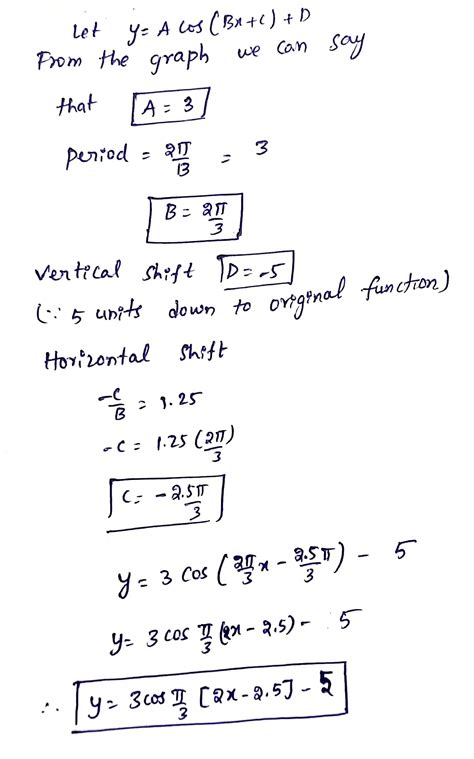 Let y = A cos(Bx+c) + D
From the graph we can say
that A = 3
period = 2π/B = 3
B = 2π/3
Vertical shift D = -5
(∵ 5 units down to original function)
Horizontal shift
-c/B = 1.25
-c = 1.25 (2π/3)
C = -2.5π/3
y = 3 cos (2π/3 x - 2.5π/3) - 5
y = 3 cos π/3 (2x - 2.5) - 5
∴ y = 3 cos π/3 [2x - 2.5] - 5